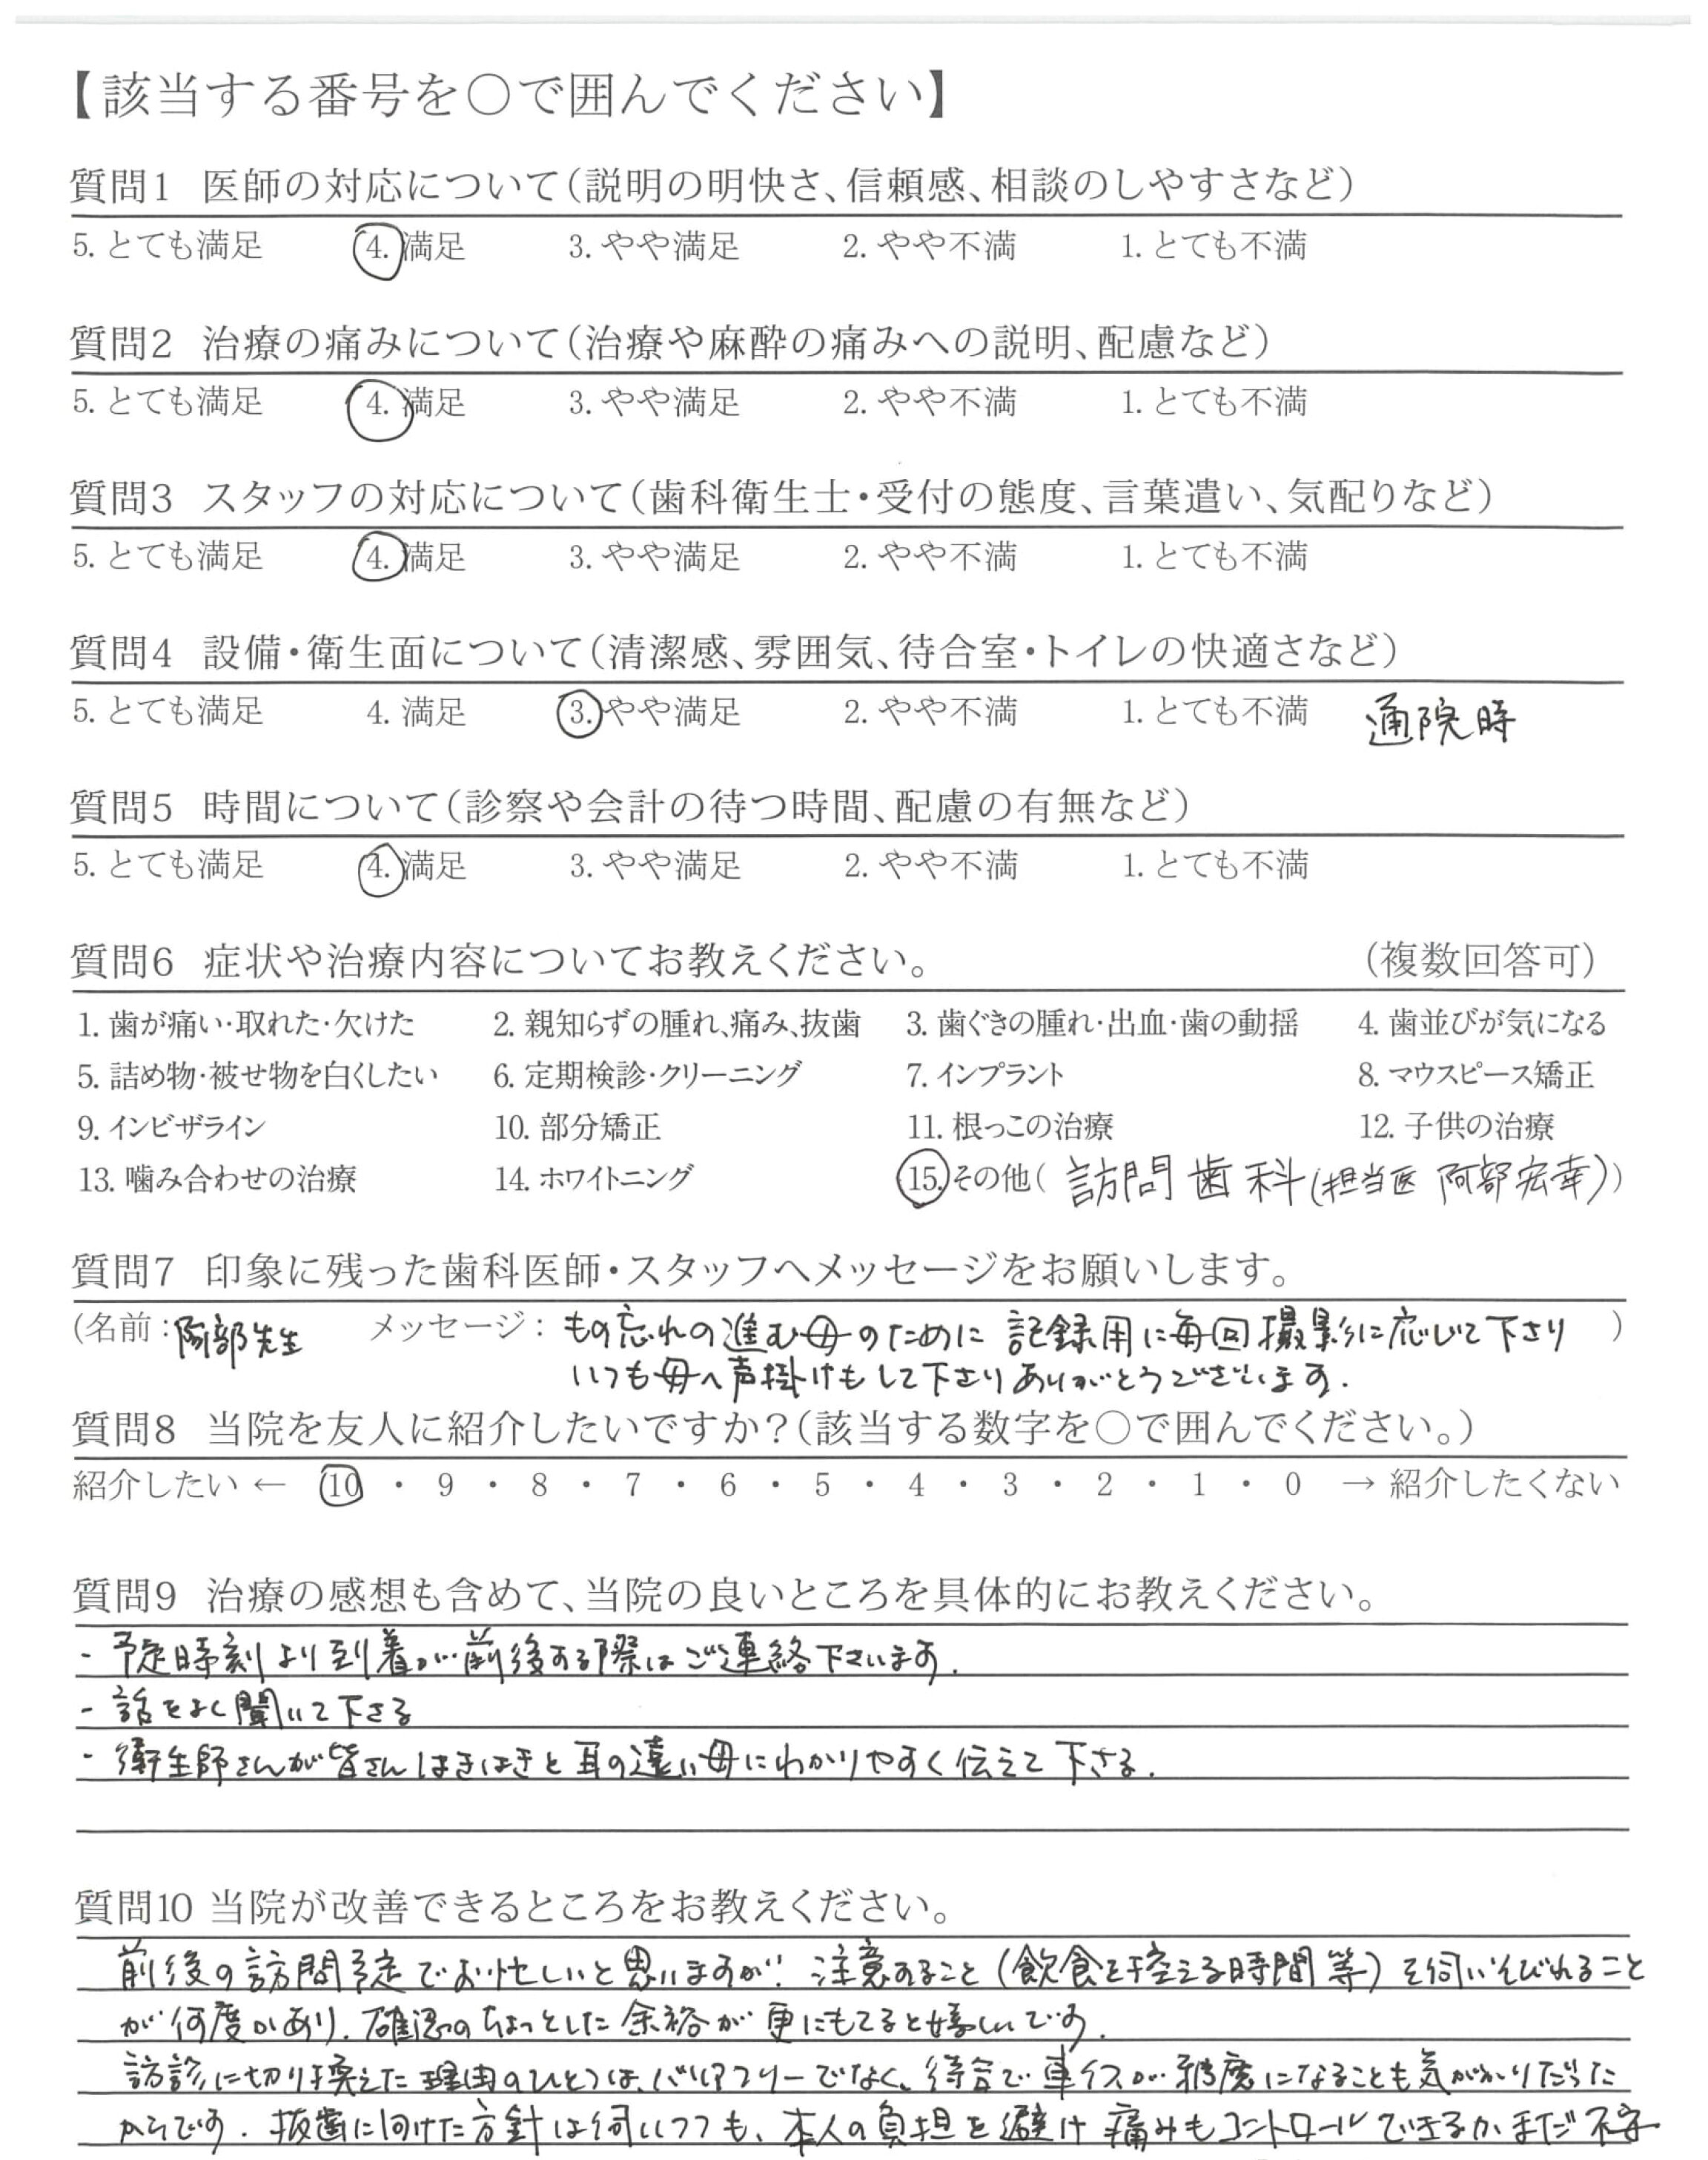 【該当する番号を○で囲んでください】
質問1 医師の対応について(説明の明快さ、信頼感、相談のしやすさなど)
5. とても満足 4. 満足 3. やや満足 2. やや不満 1. とても不満
質問2 治療の痛みについて(治療や麻酔の痛みへの説明、配慮など)
5. とても満足 4. 満足 3. やや満足 2. やや不満 1. とても不満
質問3 スタッフの対応について(歯科衛生士・受付の態度、言葉遣い、気配りなど)
5. とても満足 4. 満足 3. やや満足 2. やや不満 1. とても不満
質問4 設備・衛生面について(清潔感、雰囲気、待合室・トイレの快適さなど)
5. とても満足 4. 満足 3. やや満足 2. やや不満 1. とても不満 通院時
質問5 時間について(診察や会計の待つ時間、配慮の有無など)
5. とても満足 4. 満足 3. やや満足 2. やや不満 1. とても不満
質問6 症状や治療内容についてお教えください。 (複数回答可)
1. 歯が痛い・取れた・欠けた 2. 親知らずの腫れ、痛み、抜歯 3. 歯ぐきの腫れ・出血・歯の動揺 4. 歯並びが気になる
5. 詰め物・被せ物を白くしたい 6. 定期検診・クリーニング 7. インプラント 8. マウスピース矯正
9. インビザライン 10. 部分矯正 11. 根っこの治療 12. 子供の治療
13. 噛み合わせの治療 14. ホワイトニング 15. その他( 訪問歯科(担当医 阿部宏幸))
質問7 印象に残った歯科医師・スタッフへメッセージをお願いします。
(名前:阿部先生 メッセージ: もの忘れの進む母のために 記録用に毎回撮影に応じて下さり )
いつも母へ声掛けもして下さりありがとうございます.
質問8 当院を友人に紹介したいですか?(該当する数字を○で囲んでください。)
紹介したい ← 10 ・ 9 ・ 8 ・ 7 ・ 6 ・ 5 ・ 4 ・ 3 ・ 2 ・ 1 ・ 0 → 紹介したくない
質問9 治療の感想も含めて、当院の良いところを具体的にお教えください。
- 予定時刻より到着が前後する際はご連絡下さいます.
- 話をよく聞いて下さる
- 衛生師さんが皆さんはきはきと耳の遠い母にわかりやすく伝えて下さる.
質問10 当院が改善できるところをお教えください。
前後の訪問予定でお忙しいと思いますが、注意すること(飲食を控える時間等)を伺いそびれること
が何度かあり、確認のちょっとした余裕が更にもてると嬉しいです.
訪診に切り換えた理由のひとつは、バリアフリーでなく、待合で車イスが邪魔になることも気がかりだった
からです. 抜歯に向けた方針は伺いつつも、本人の負担を避け痛みもコントロールできるかまだ不安